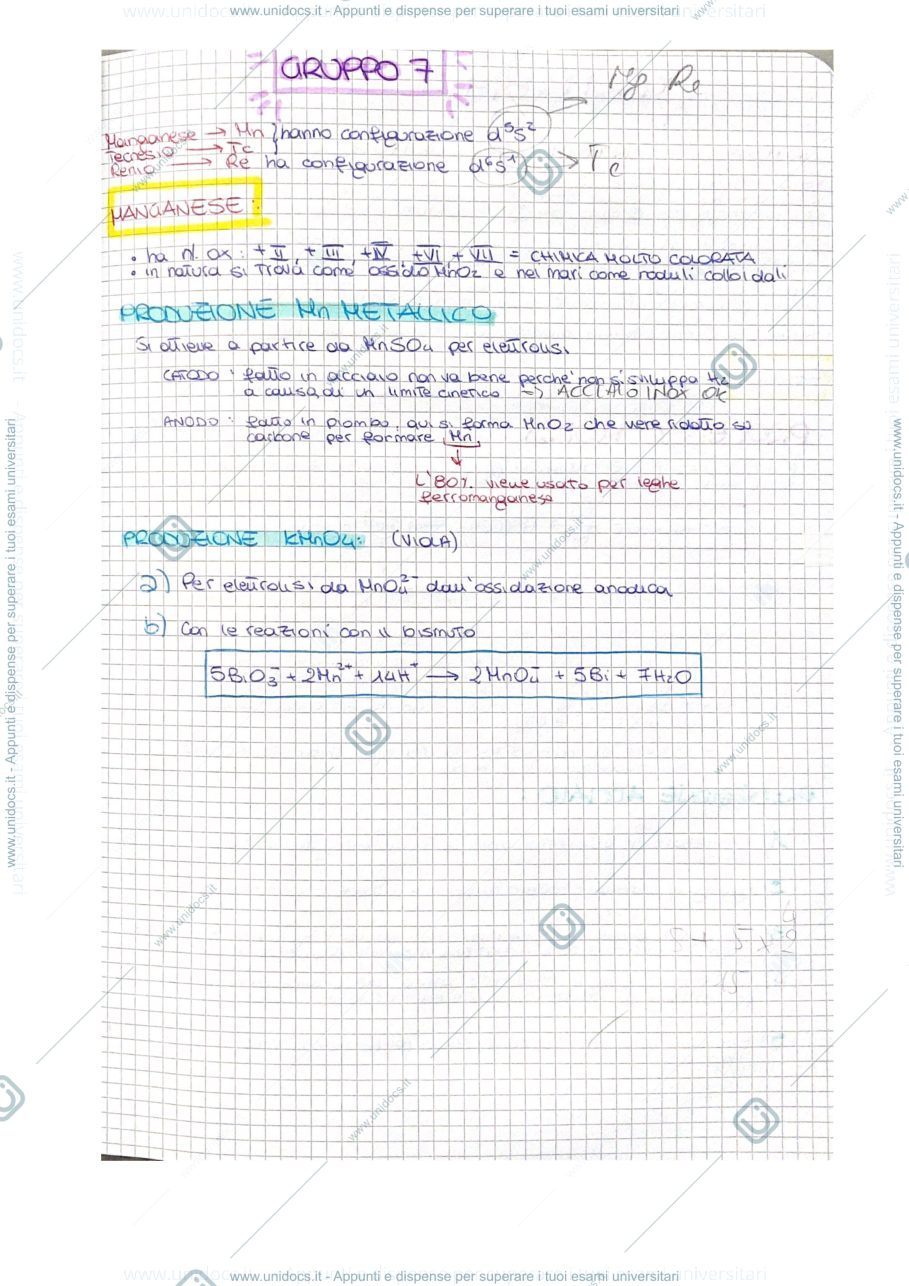 www.unidocs.it - Appunti e dispense per superare i tuoi esami universitari
GRUPPO 7
Mg Re
Manganese → Mn } hanno configurazione d⁵s²
Tecnesio → Tc
Renio → Re ha configurazione d⁶s¹ → Tc
MANGANESE:
• ha n. ox: +II, +III, +IV, +VI, +VII = CHIMICA MOLTO COLORATA
• in natura si trova come ossido MnO₂ e nei mari come noduli colloidali
PRODUZIONE Mn METALLICO
Si ottiene a partire da MnSO₄ per elettrolisi
CATODO: fatto in acciaio non va bene perché non si sviluppa H₂
a causa di un limite cinetico → ACCIAIO INOX OK
ANODO: fatto in piombo, qui si forma MnO₂ che viene ridotto su
carbone per formare Mn.
↓
L'80% viene usato per leghe
ferromanganese
PRODUZIONE KMnO₄: (VIOLA)
a) Per elettrolisi da MnO₄²⁻ dall'ossidazione anodica
b) Con le reazioni con il bismuto
5BiO₃⁻ + 2Mn²⁺ + 14H⁺ → 2MnO₄⁻ + 5Bi + 7H₂O
www.unidocs.it - Appunti e dispense per superare i tuoi esami universitari